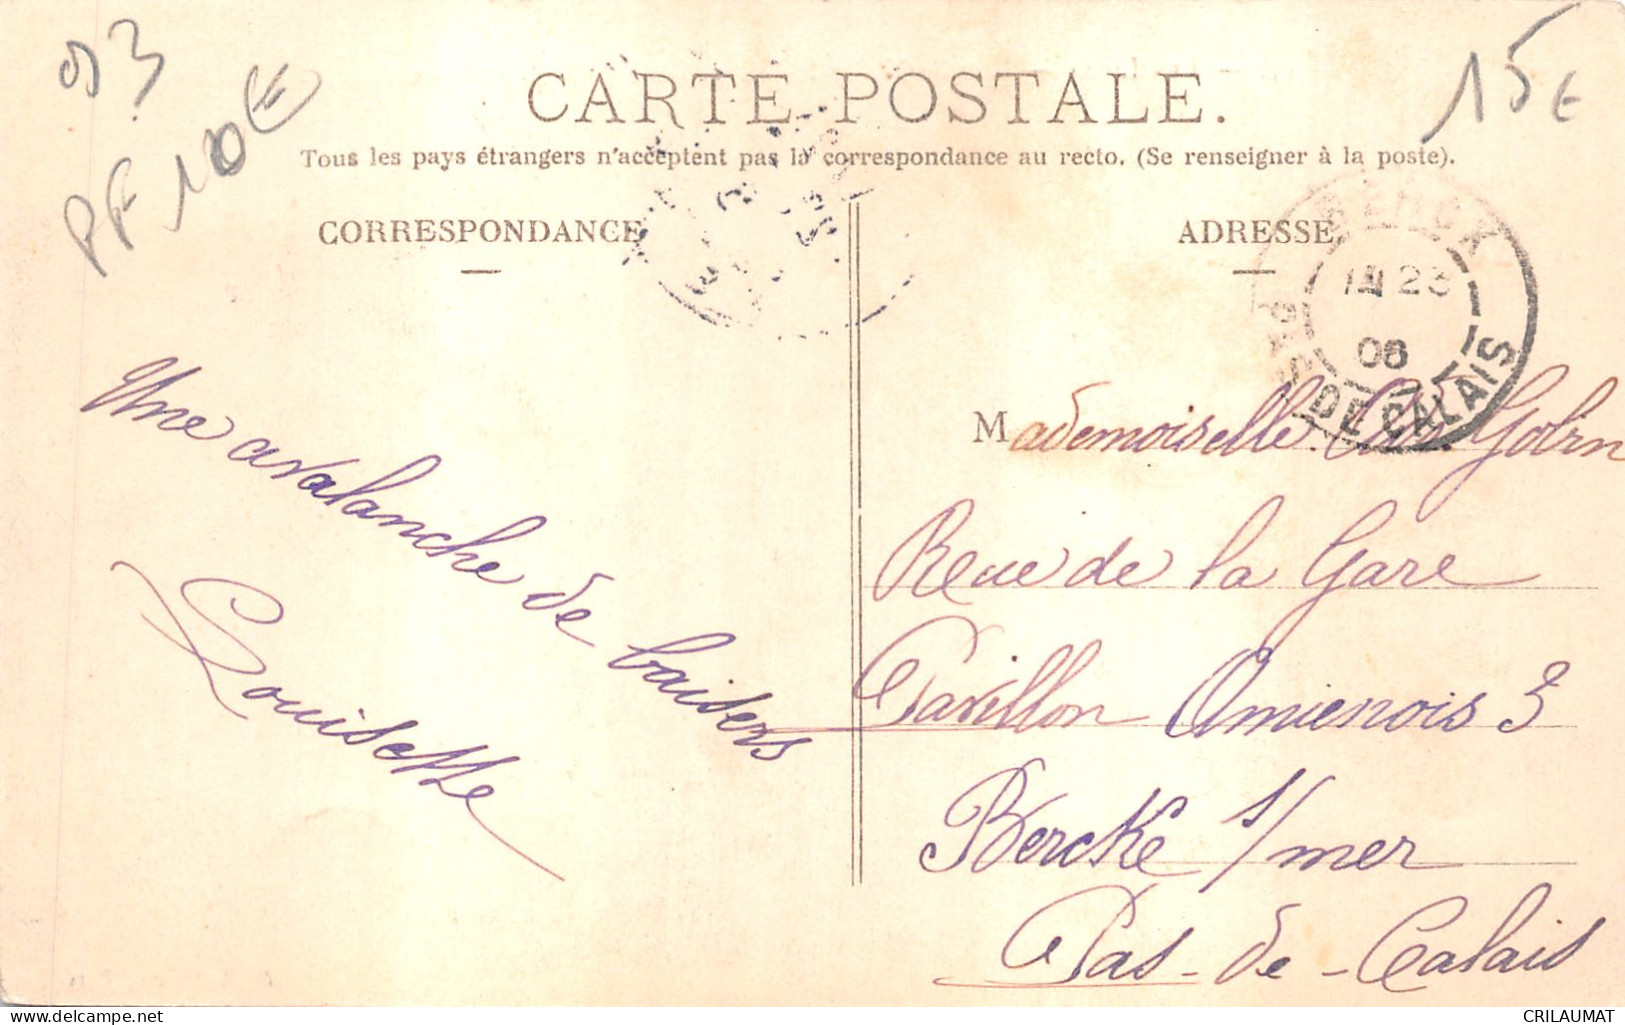 93
PF 10 €
15 €
CARTE POSTALE.
Tous les pays étrangers n'acceptent pas la correspondance au recto. (Se renseigner à la poste).
CORRESPONDANCE
ADRESSE
BERCK
23
06
PAS DE CALAIS
Une avalanche de baisers
Louisette
Mademoiselle Gobin
Reue de la Gare
Pavillon Amienois 3
Bercke s/mer
Pas-de-Calais
CRILAUMAT